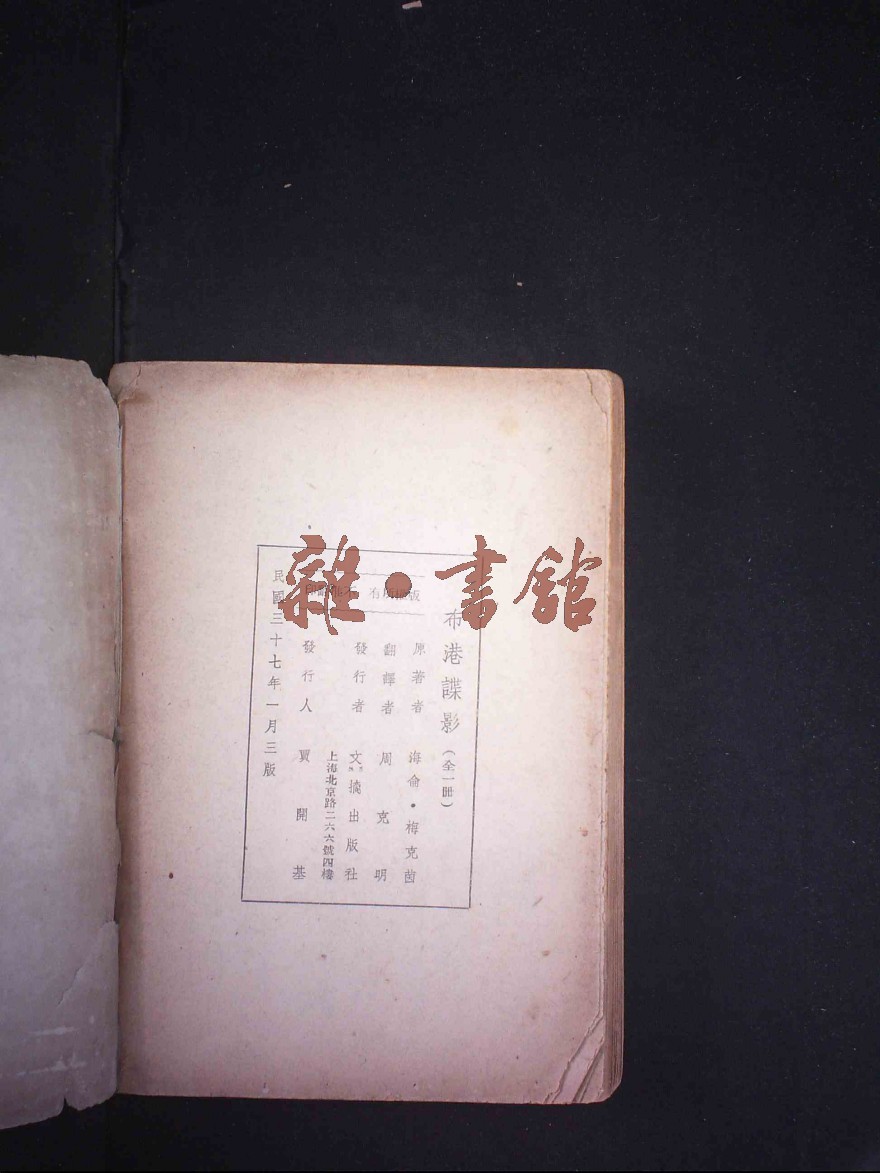 雜·書館
布港諜影（全一冊）
原著者 海侖·梅克茵
翻譯者 周克明
發行者 文摘出版社
上海北京路二六六號四樓
發行人 賈開基
民國三十七年一月三版